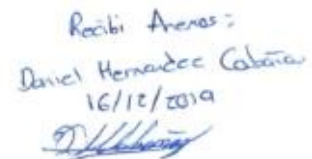 Recibi Anexos:
Daniel Hernandez Cabaña
16/12/2019